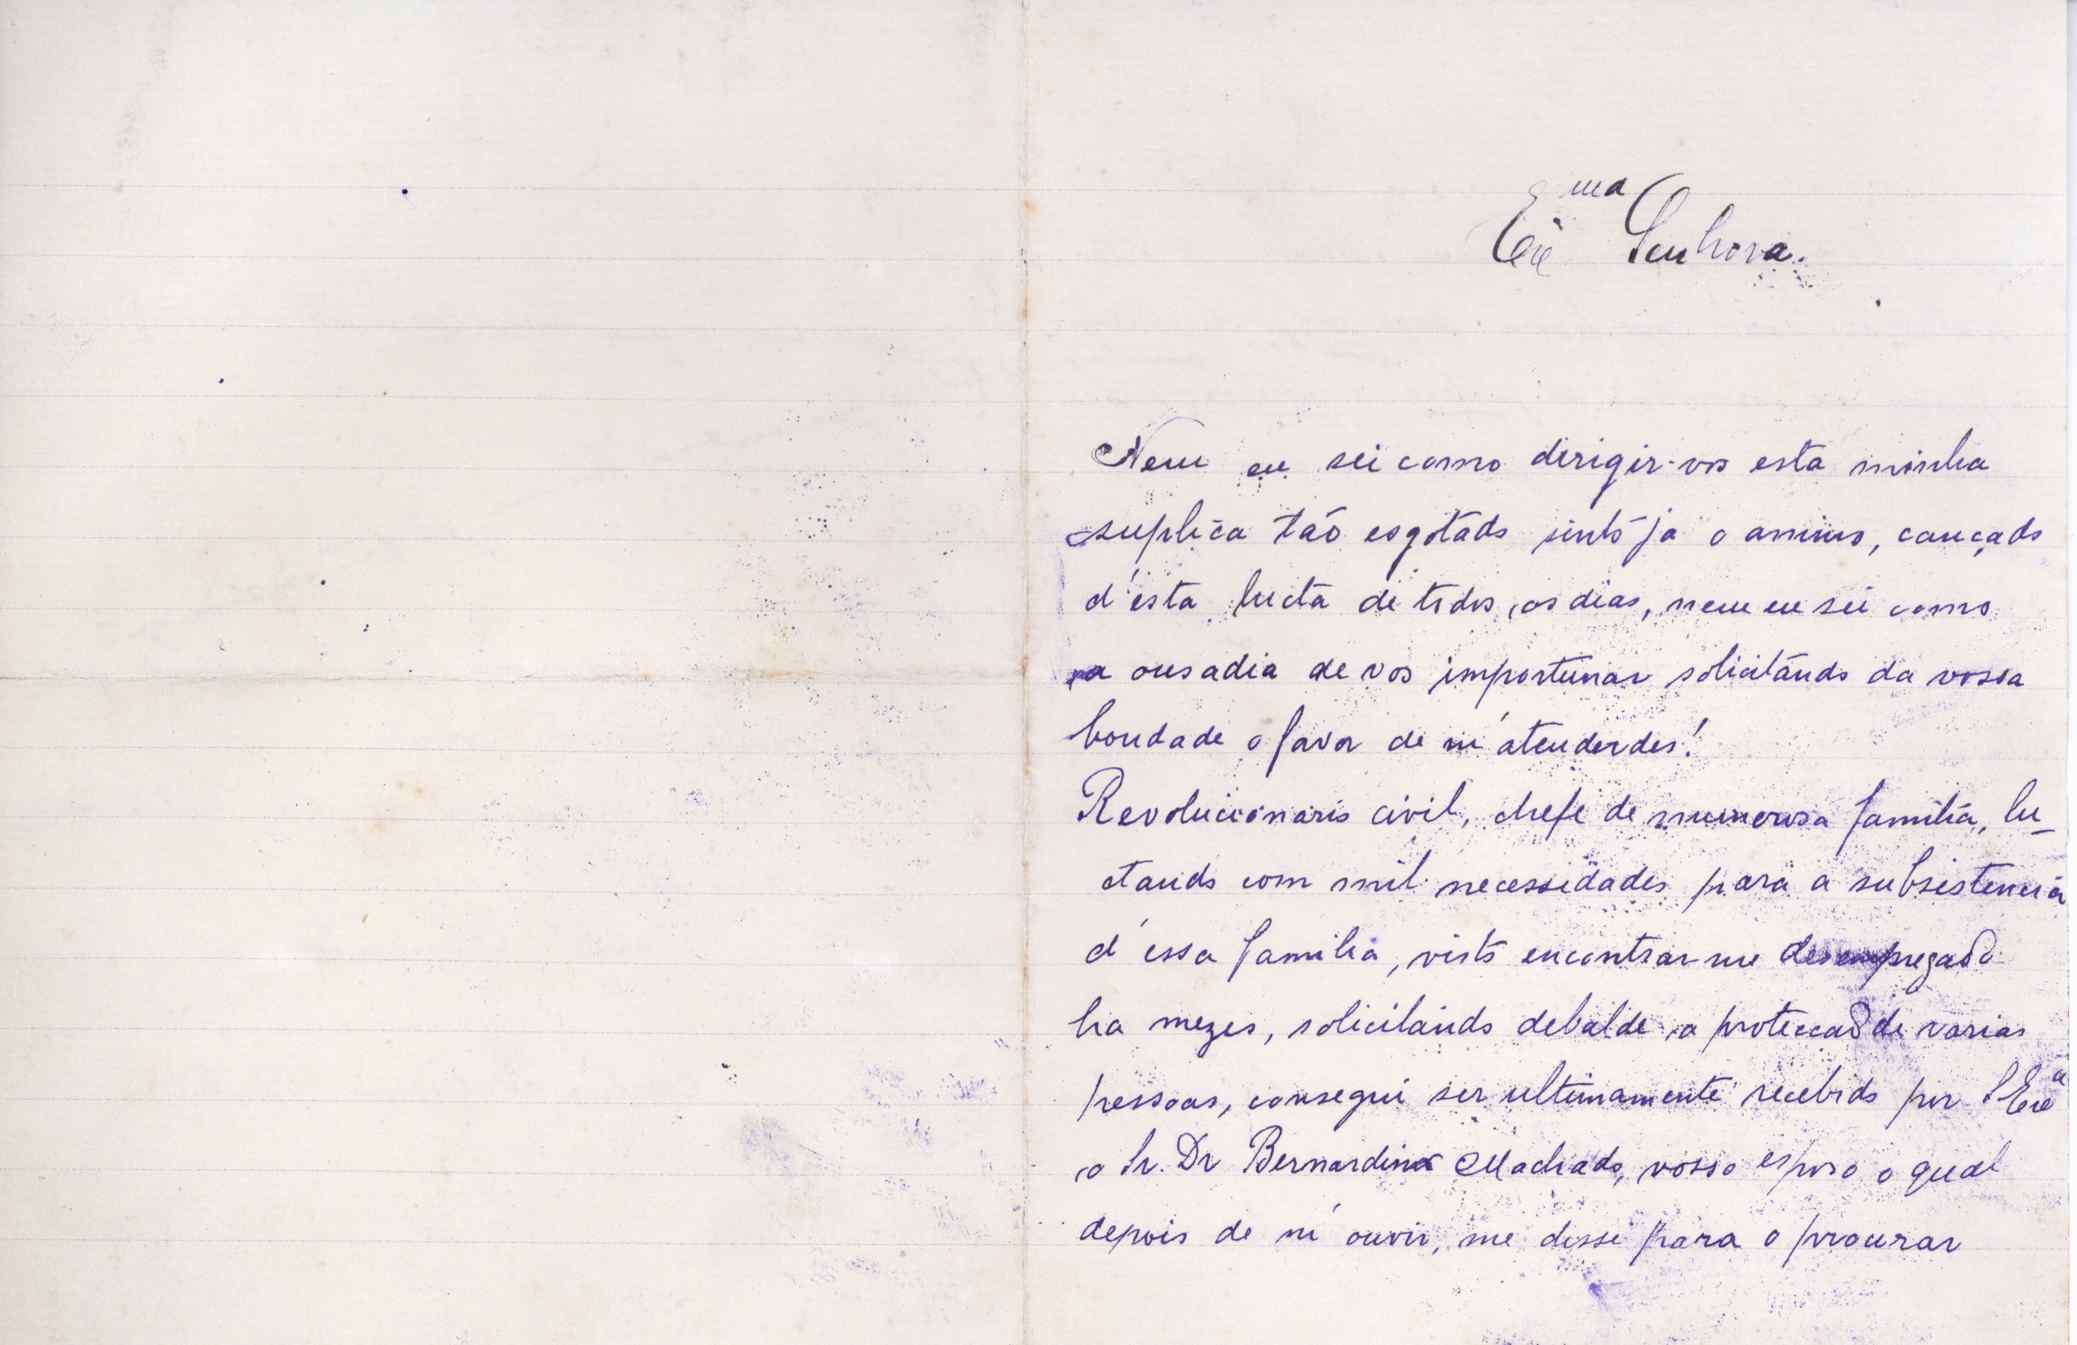 Exc.ma Senhora.
Nem eu sei como dirigir-vos esta minha
suplica tão esgotado sinto já o animo, cançado
d'esta lucta de todos os dias, nem eu sei como
a ousadia de vos importunar solicitando da vossa
bondade o favor de m'atenderdes!
Revolucionario civil, chefe de numerosa familia, lu-
ctando com mil necessidades para a subsistencia
d'essa familia, visto encontrar-me desempregado
ha mezes, solicitando debalde a protecção de varias
pessoas, consegui ser ultimamente recebido por S. Exc.a
o Sr. Dr Bernardino Machado, vosso esposo o qual
depois de m'ouvir, me disse para o procurar